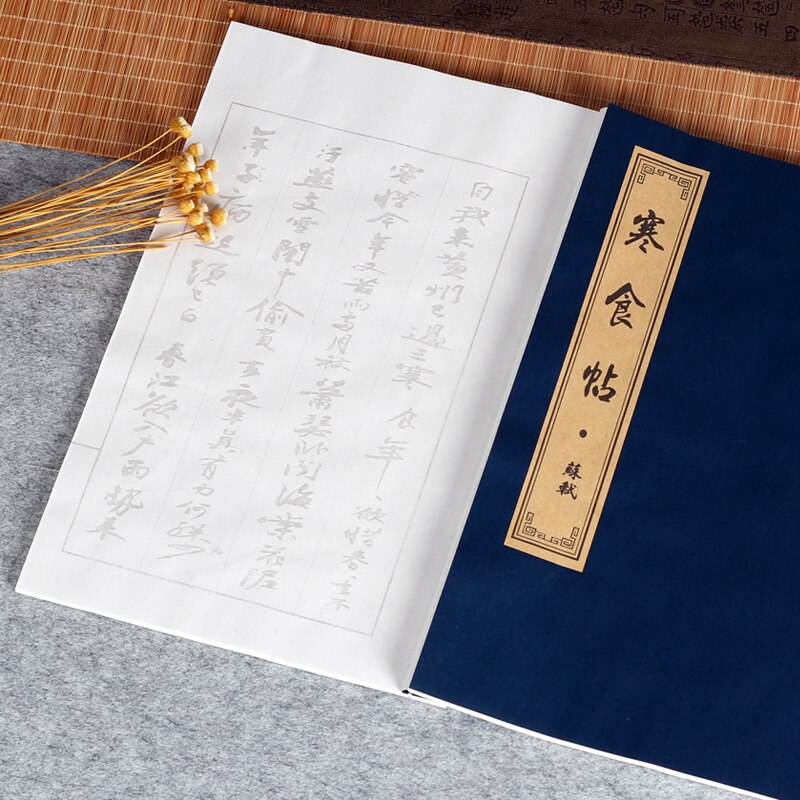 寒食帖·蘇軾
自我来黄州已過三寒食年〻欲惜春〻去不
容惜今年又苦雨兩月秋蕭瑟卧聞海棠花泥
汙燕支雪闇中偷負去夜半真有力何殊少
年子病起頭已白春江欲入户雨勢来